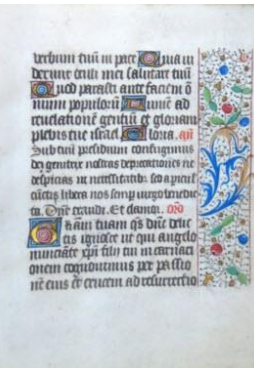 verbum tuū in pace Quia ui
derunt oculi mei salutare tuū
Quod parasti ante faciem o
mniū populorū Lumē ad
reuelationē gentiū et gloriam
plebis tue israel Gloria. añ
Sub tuū presidium confugimus
dei genitrix nostras deprecationes ne
despicias in necessitatibꝫ sed a pericul
cūctis libera nos semp uirgo benedic
ta. Dñe exaudi. Et clamor. oro
Gratiam tuam qs dñe
ut qui angelo
nunciāte xp̄i filii tui incarnati
onem cognouimus per passio
nē eius et crucem ad resurrectio